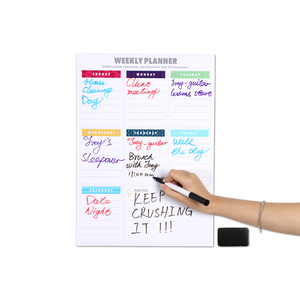 WEEKLY PLANNER
SUNDAY
MONDAY
TUESDAY
House
Cleaning
Day
Client
meeting
Joey-guitar
lessons start
WEDNESDAY
THURSDAY
FRIDAY
Joey's
Sleepover
Joey-guitar
Brunch
with Joey
11:00 am
Walk
the dog
SATURDAY
NOTES
Date
Night
KEEP
CRUSHING
IT !!!